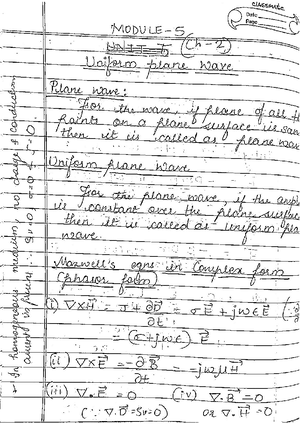 classmate
Date
Page
MODULE-5
UNIT-5 (Ch-2)
Uniform plane wave
Plane wave:
For the wave, if phase of all the
points on a plane surface is same
then it is called as plane wave
Uniform plane wave
For the plane wave, if the ampli
is constant over the plane surface
then it is called as uniform plane
wave.
Maxwell's eqns in Complex form
(phasor form)
(i) ∇×H = J + ∂D/∂t = σE + jωεE (∵
= (σ+jωε) E
(ii) ∇×E = -∂B/∂t = -jωμH
(iii) ∇.E = 0 (iv) ∇.B = 0
(∵ ∇.D = Sv = 0) or ∇.H = 0
* In homogeneous medium no charge & conduction
current is present Sv=0, σ=0 + J=0